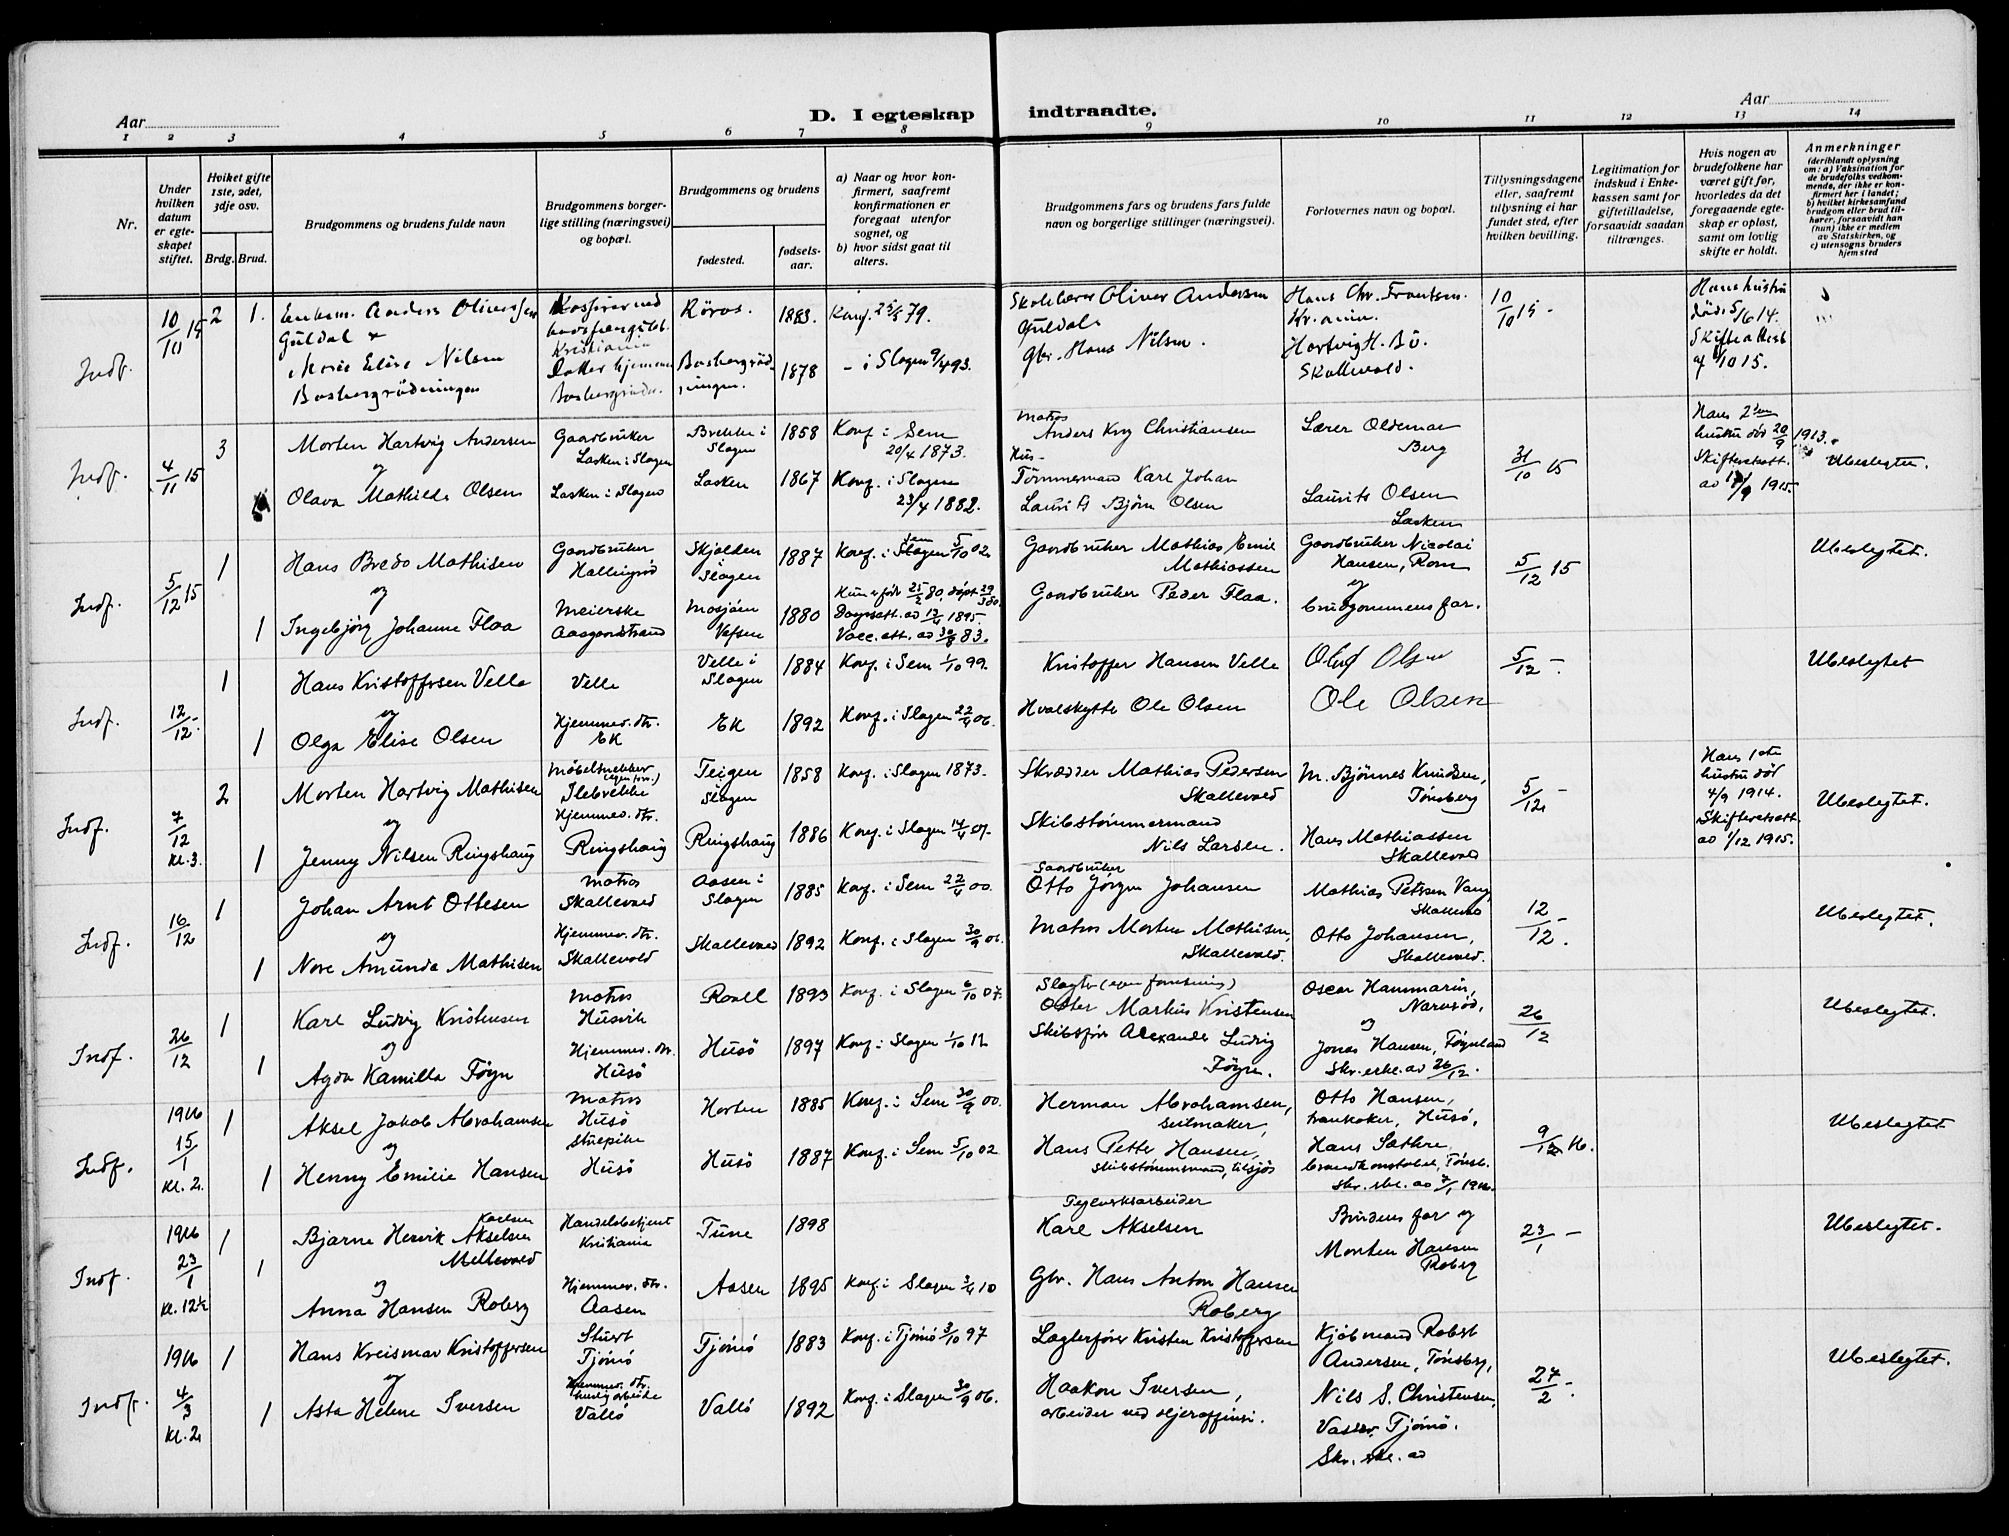 D. I egteskap indtraadte.
Aar
Aar
1 2 3 4 5 6 7 8 9 10 11 12 13 14
Nr.
Under hvilken datum er egteskapet stiftet.
Hviket gifte 1ste, 2det, 3dje osv.
Brdg. Brud.
Brudgommens og brudens fulde navn
Brudgommens borgerlige stilling (næringsvei) og bopæl.
Brudgommens og brudens
fødested.
fødselsaar.
a) Naar og hvor konfirmert, saafremt konfirmationen er foregaat utenfor sognet, og
b) hvor sidst gaat til alters.
Brudgommens fars og brudens fars fulde navn og borgerlige stillinger (næringsvei).
Forlovernes navn og bopæl.
Tillysningsdagene eller, saafremt tillysning ei har fundet sted, efter hvilken bevilling.
Legitimation for indskud i Enkekassen samt for giftetilladelse, forsaavidt saadan tiltrænges.
Hvis nogen av brudefolkene har været gift før, hvorledes da det foregaaende egteskap er opløst, samt om lovlig skifte er holdt.
Anmerkninger
(deriblandt oplysning om: a) Vaksination for de brudefolks vedkommende, der ikke er konfirmert her i landet; b) hvilket kirkesamfund brudgom eller brud tilhører, forsaavidt han (hun) ikke er medlem av Statskirken, og c) utensogns bruders hjemsted
Indf. 10/10 15 2 1.
Anders Oliversen
Guldal
Kristiania
Røros. 1883. Konf. 79.
Skolelærer Oliver Andersen
Guldal
Hans Chr. Frantsen.
10/10 15 -
Hans hustru
død 5/6 14.
Marie Elise Nilsen
Basbergrødningen
1878 - i Slagen 9/4 93.
Gbr. Hans Nilsen.
Hartvig H. Bö.
Skallevold.
Indf. 4/11 15 3
Morten Hartvig Andersen
og
Gaardbruker
Lasken i Slagen
Brekke i Slagen
1858 Konf. i Sem 20/4 1873.
Matros
Anders Krog Christiansen
Lærer Oldemar Berg
31/10 15
Hans 2den
hustru død 20/9 1913.
Skifteratt.
av 17/9 1915.
Ubeslegtet.
Olava Mathilde Olsen
Lasken i Slagen
Lasken 1867 Konf. i Slagen 23/4 1882.
Hus-
Tømmermand Karl Johan
Laurits Bjørn Olsen
Laurits Olsen
Lasken
Indf. 5/12 15 1
Hans Bredo Mathisen
og
Gaardbruker
Hallingrød
Skjolden
Slagen
1887 Konf. i Sem 5/10 02.
Gaardbruker Mathias Emil
Mathiassen
Gaardbruker Nicolai
Hansen, Rom
og
brudgommens far.
5/12 15
Ubeslegtet.
1 Ingebjørg Johanne Flaa
Meierske
Aasgaardstrand
Mosjøen
Vefsen
1880
Hun er født 25/2 80, døpt 29/3 80.
Daapsatt. av 13/4 1895.
Vacc. att. av 30/8 83.
Gaardbruker Peder Flaa.
Indf. 12/12 - 1
Hans Kristoffersen Velle
og
Velle
Velle i
Slagen
1884 Konf. i Sem 1/10 99.
Kristoffer Hansen Velle
Oluf Olsen
5/12 -.
Ubeslegtet
1 Olga Elise Olsen
Hjemmev. dtr.
Ek
Ek 1892 Konf. i Slagen 22/4 06.
Hvalskytte Ole Olsen
Ole Olsen
Indf. 7/12 Kl. 3. 2
Morten Hartvig Mathisen
og
Møbelsnekker
(egen forr.)
Ilebrekke
Teigen
Slagen
1858 Konf. i Slagen 1873.
Skrædder Mathias Pedersen
Skallevold
M. Bjönnes Knudsen,
Tønsberg
5/12 -
Hans 1ste
hustru død
4/9 1914.
Skifteratt.
av 1/12 1915.
Ubeslegtet.
1 Jenny Nilsen Ringshaug
Hjemmev. dtr.
Ringshaug
Ringshaug 1886 Konf. i Slagen 14/4 01.
Skibstømmermand
Nils Larsen.
Hans Mathiassen
Skallevold
Indf. 16/12 1
Johan Arnt Ottesen
og
Matros
Skallevold
Aasen i
Slagen
1885 Konf. i Sem 22/4 00.
Gaardbruker
Otto Jørgen Johansen
Mathias Petersen Vang,
Skallevold
12/12 -.
Ubeslegtet.
1 Nore Amunda Mathisen
Hjemmev. dtr.
Skallevold
Skallevold 1892 Konf. i Slagen 30/9 06.
Matros Morten Mathisen,
Skallevold.
Otto Johansen,
Skallevold.
Indf. 26/12 1
Karl Ludvig Kristensen
og
Matros
Husvik
Roall 1893 Konf. i Slagen 6/10 07.
Slagter (egen forretning)
Oskar Markus Kristensen
Oscar Hammarin,
Narverød,
og
26/12
Ubeslegtet.
1 Agda Kamilla Føyn
Hjemmev. dtr.
Husö
Husö 1897 Konf. i Slagen 1/10 11.
Skibsfører Alexander Ludvig
Føyn.
Jonas Hansen, Føynland
Skr. erkl. av 26/12.
Indf. 1916 15/1 Kl. 2. 1
Aksel Jakob Abrahamsen
og
Matros
Husö
Horten 1885 Konf. i Sem 30/9 00.
Herman Abrahamsen,
seilmaker,
Otto Hansen,
trankoker, Husö,
9/12 16.
Ubeslegtet
1 Henny Emilie Hansen
Stuepike
Husö
Husö 1887 Konf. i Sem 5/10 02
Hans Petter Hansen,
Skibstømmermand, tilsjøs
Hans Sæthre,
brandkonstabel, Tønsb.
Skr. erkl. av 7/1 1916.
Indf. 1916 23/1 Kl. 12½ 1
Karlsen
Bjarne Henrik Akselsen
Mellevold
og
Handelsbetjent
Kristiania
Tune 1898
Teglverksarbeider
Karl Akselsen
Brudens far og
Morten Hansen
Roberg
23/1 -
Ubeslegtet.
1 Anna Hansen Roberg
Hjemmev. dtr.
Aasen
Aasen 1895 Konf. i Slagen 3/4 10
Gbr. Hans Anton Hansen
Roberg
Indf. 1916 4/3 Kl. 2. 1
Hans Kreismar Kristoffersen
og
Stuert
Tjömö
Tjömö 1883 Konf. i Tjömö 3/10 97
Lagterfører Kristen Kristoffersen
Kjøbmand Robert
Andersen, Tönsberg,
27/2 -.
Ubeslegtet.
1 Asta Helene Iversen
Hjemmev. dtr.
Vallö
Vallö 1892 Konf. i Slagen 30/9 06.
Haakon Iversen,
arbeider ved oljeraffineri.
Nils S. Christensen,
Tjömö.
Skr. erkl. av